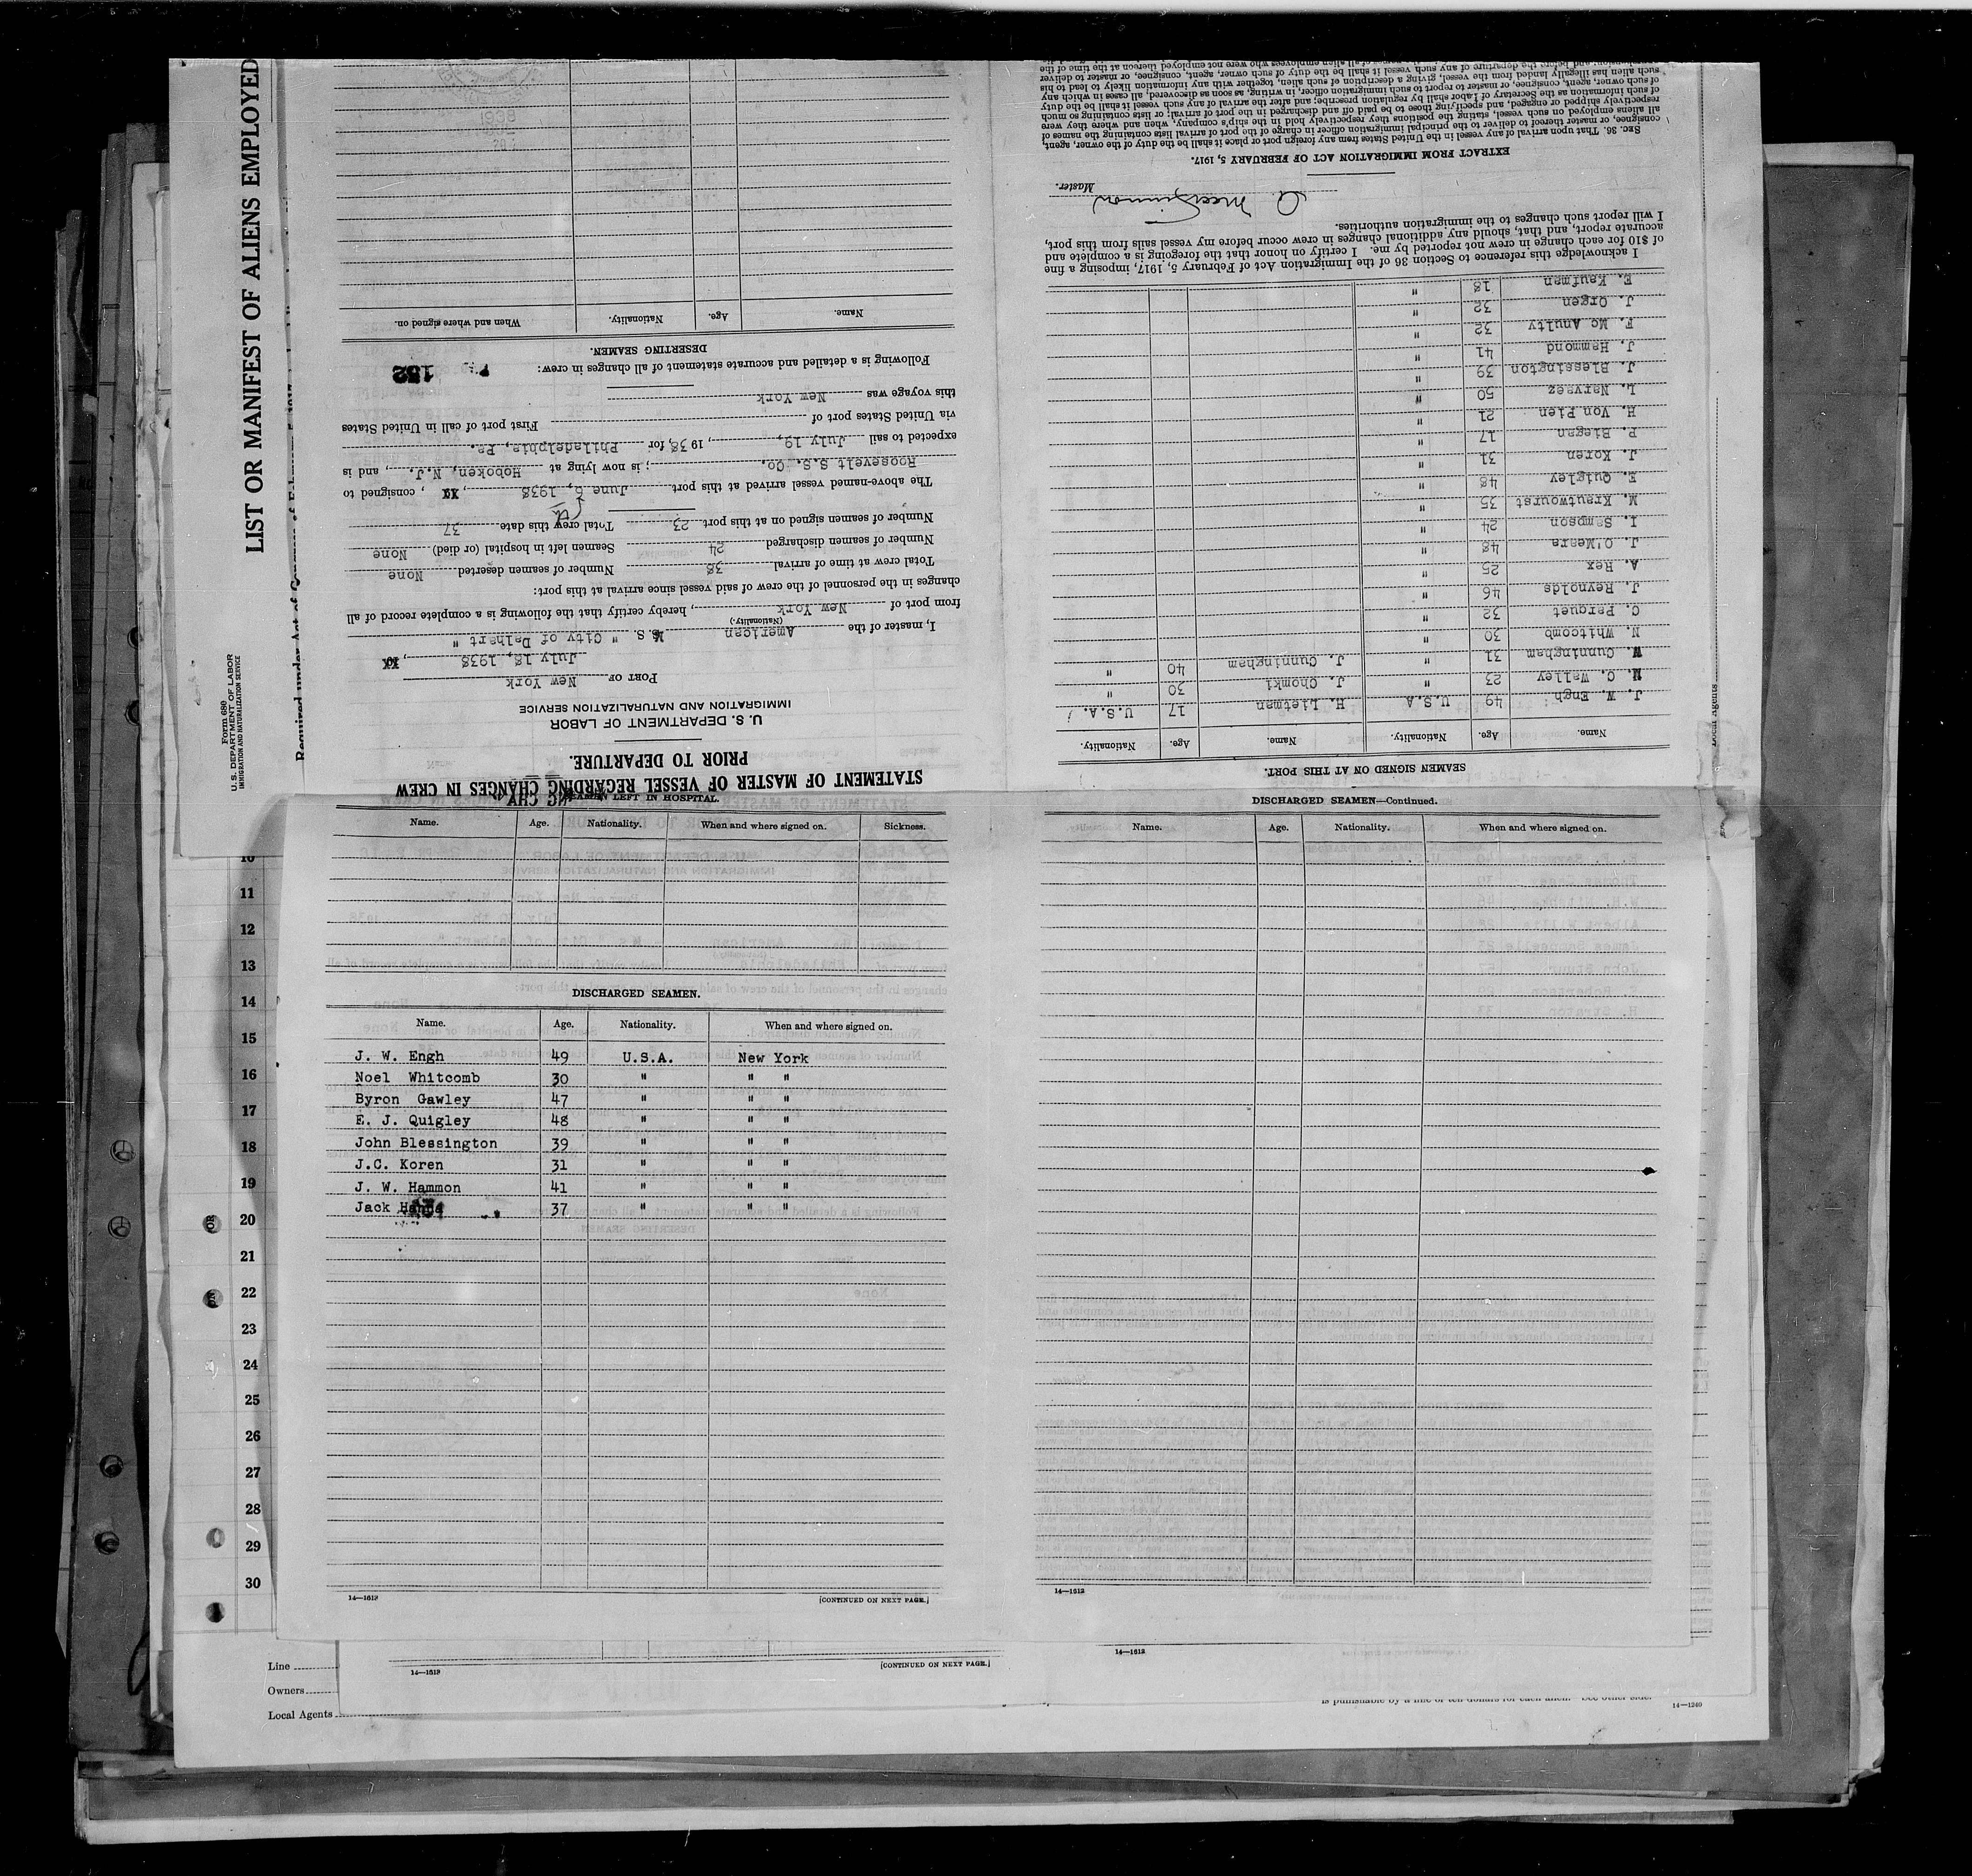 LIST OR MANIFEST OF ALIENS EMPLOYED
Form 680
U. S. DEPARTMENT OF LABOR
IMMIGRATION AND NATURALIZATION SERVICE
STATEMENT OF MASTER OF VESSEL REGARDING CHANGES IN CREW
PRIOR TO DEPARTURE.
U. S. DEPARTMENT OF LABOR
IMMIGRATION AND NATURALIZATION SERVICE
PORT OF New York
July 18, 1938,
I, master of the American M.S. " City of Dalhart "
(Nationality.)
from port of New York, hereby certify that the following is a complete record of all
changes in the personnel of the crew of said vessel since arrival at this port:
Total crew at time of arrival 38 Number of seamen deserted None
Number of seamen discharged 24 Seamen left in hospital (or died) None
Number of seamen signed on at this port 23 Total crew this date 37
The above-named vessel arrived at this port June 6, 1938, consigned to
Roosevelt S.S. Co.; is now lying at Hoboken, N.J., and is
expected to sail July 19,, 1938, for Philadelphia, Pa.
via United States port of First port of call in United States
this voyage was New York
Following is a detailed and accurate statement of all changes in crew:
152
DESERTING SEAMEN.
Name. Age. Nationality. When and where signed on.
SEAMEN SIGNED ON AT THIS PORT.
Name. Age. Nationality. Name. Age. Nationality.
J. W. Engh 49 U.S.A H. Lietman 17 U.S.A.
M. C. Walley 23 " J. Chomki 30 "
W. Cunningham 31 " J. Cunningham 40 "
N. Whitcomb 30 "
C. Perquet 32 "
J. Reynolds 46 "
A. Rex 25 "
J. O'Meara 48 "
I. Sampson 24 "
M. Krautwourst 35 "
E. Quigley 48 "
J. Koren 31 "
P. Biegan 17 "
H. Von Plen 21 "
L. Narvaez 50 "
J. Blessington 39 "
J. Hammond 41 "
F. Mc Anulty 32 "
J. Orgen 32 "
E. Kaufman 18 "
I acknowledge this reference to Section 36 of the Immigration Act of February 5, 1917, imposing a fine
of $10 for each change in crew not reported by me. I certify on honor that the foregoing is a complete and
accurate report, and that, should any additional changes in crew occur before my vessel sails from this port,
I will report such changes to the immigration authorities.
Master.
EXTRACT FROM IMMIGRATION ACT OF FEBRUARY 5, 1917.
SEC. 36. That upon arrival of any vessel in the United States from any foreign port or place it shall be the duty of the owner, agent,
consignee, or master thereof to deliver to the principal immigration officer in charge of the port of arrival lists containing the names of
all aliens employed on such vessel, stating the positions they respectively hold in the ship's company, when and where they were
respectively shipped or engaged, and specifying those to be paid off and discharged in the port of arrival; or lists containing so much
of such information as the Secretary of Labor shall by regulation prescribe; and after the arrival of any such vessel it shall be the duty
of such owner, agent, consignee, or master to report to such immigration officer, in writing, as soon as discovered, all cases in which any
such alien has illegally landed from the vessel, giving a description of such alien, together with any information likely to lead to his
apprehension; and before the departure of any such vessel it shall be the duty of such owner, agent, consignee, or master to deliver
of all alien employees who were not employed thereon at the time of the
SEAMEN LEFT IN HOSPITAL.
Name. Age. Nationality. When and where signed on. Sickness.
DISCHARGED SEAMEN.
Name. Age. Nationality. When and where signed on.
J. W. Engh 49 U.S.A. New York
Noel Whitcomb 30 " " "
Byron Gawley 47 " " "
E. J. Quigley 48 " " "
John Blessington 39 " " "
J.C. Koren 31 " " "
J. W. Hammon 41 " " "
Jack 37 " " "
14—1612
[CONTINUED ON NEXT PAGE.]
DISCHARGED SEAMEN—Continued.
Name. Age. Nationality. When and where signed on.
14—1612
10
11
12
13
14
15
16
17
18
19
20
21
22
23
24
25
26
27
28
29
30
14—1612
[CONTINUED ON NEXT PAGE.]
14—1612
Line
Owners
Local Agents
is punishable by a fine of ten dollars for each alien. See other side.
14—1240